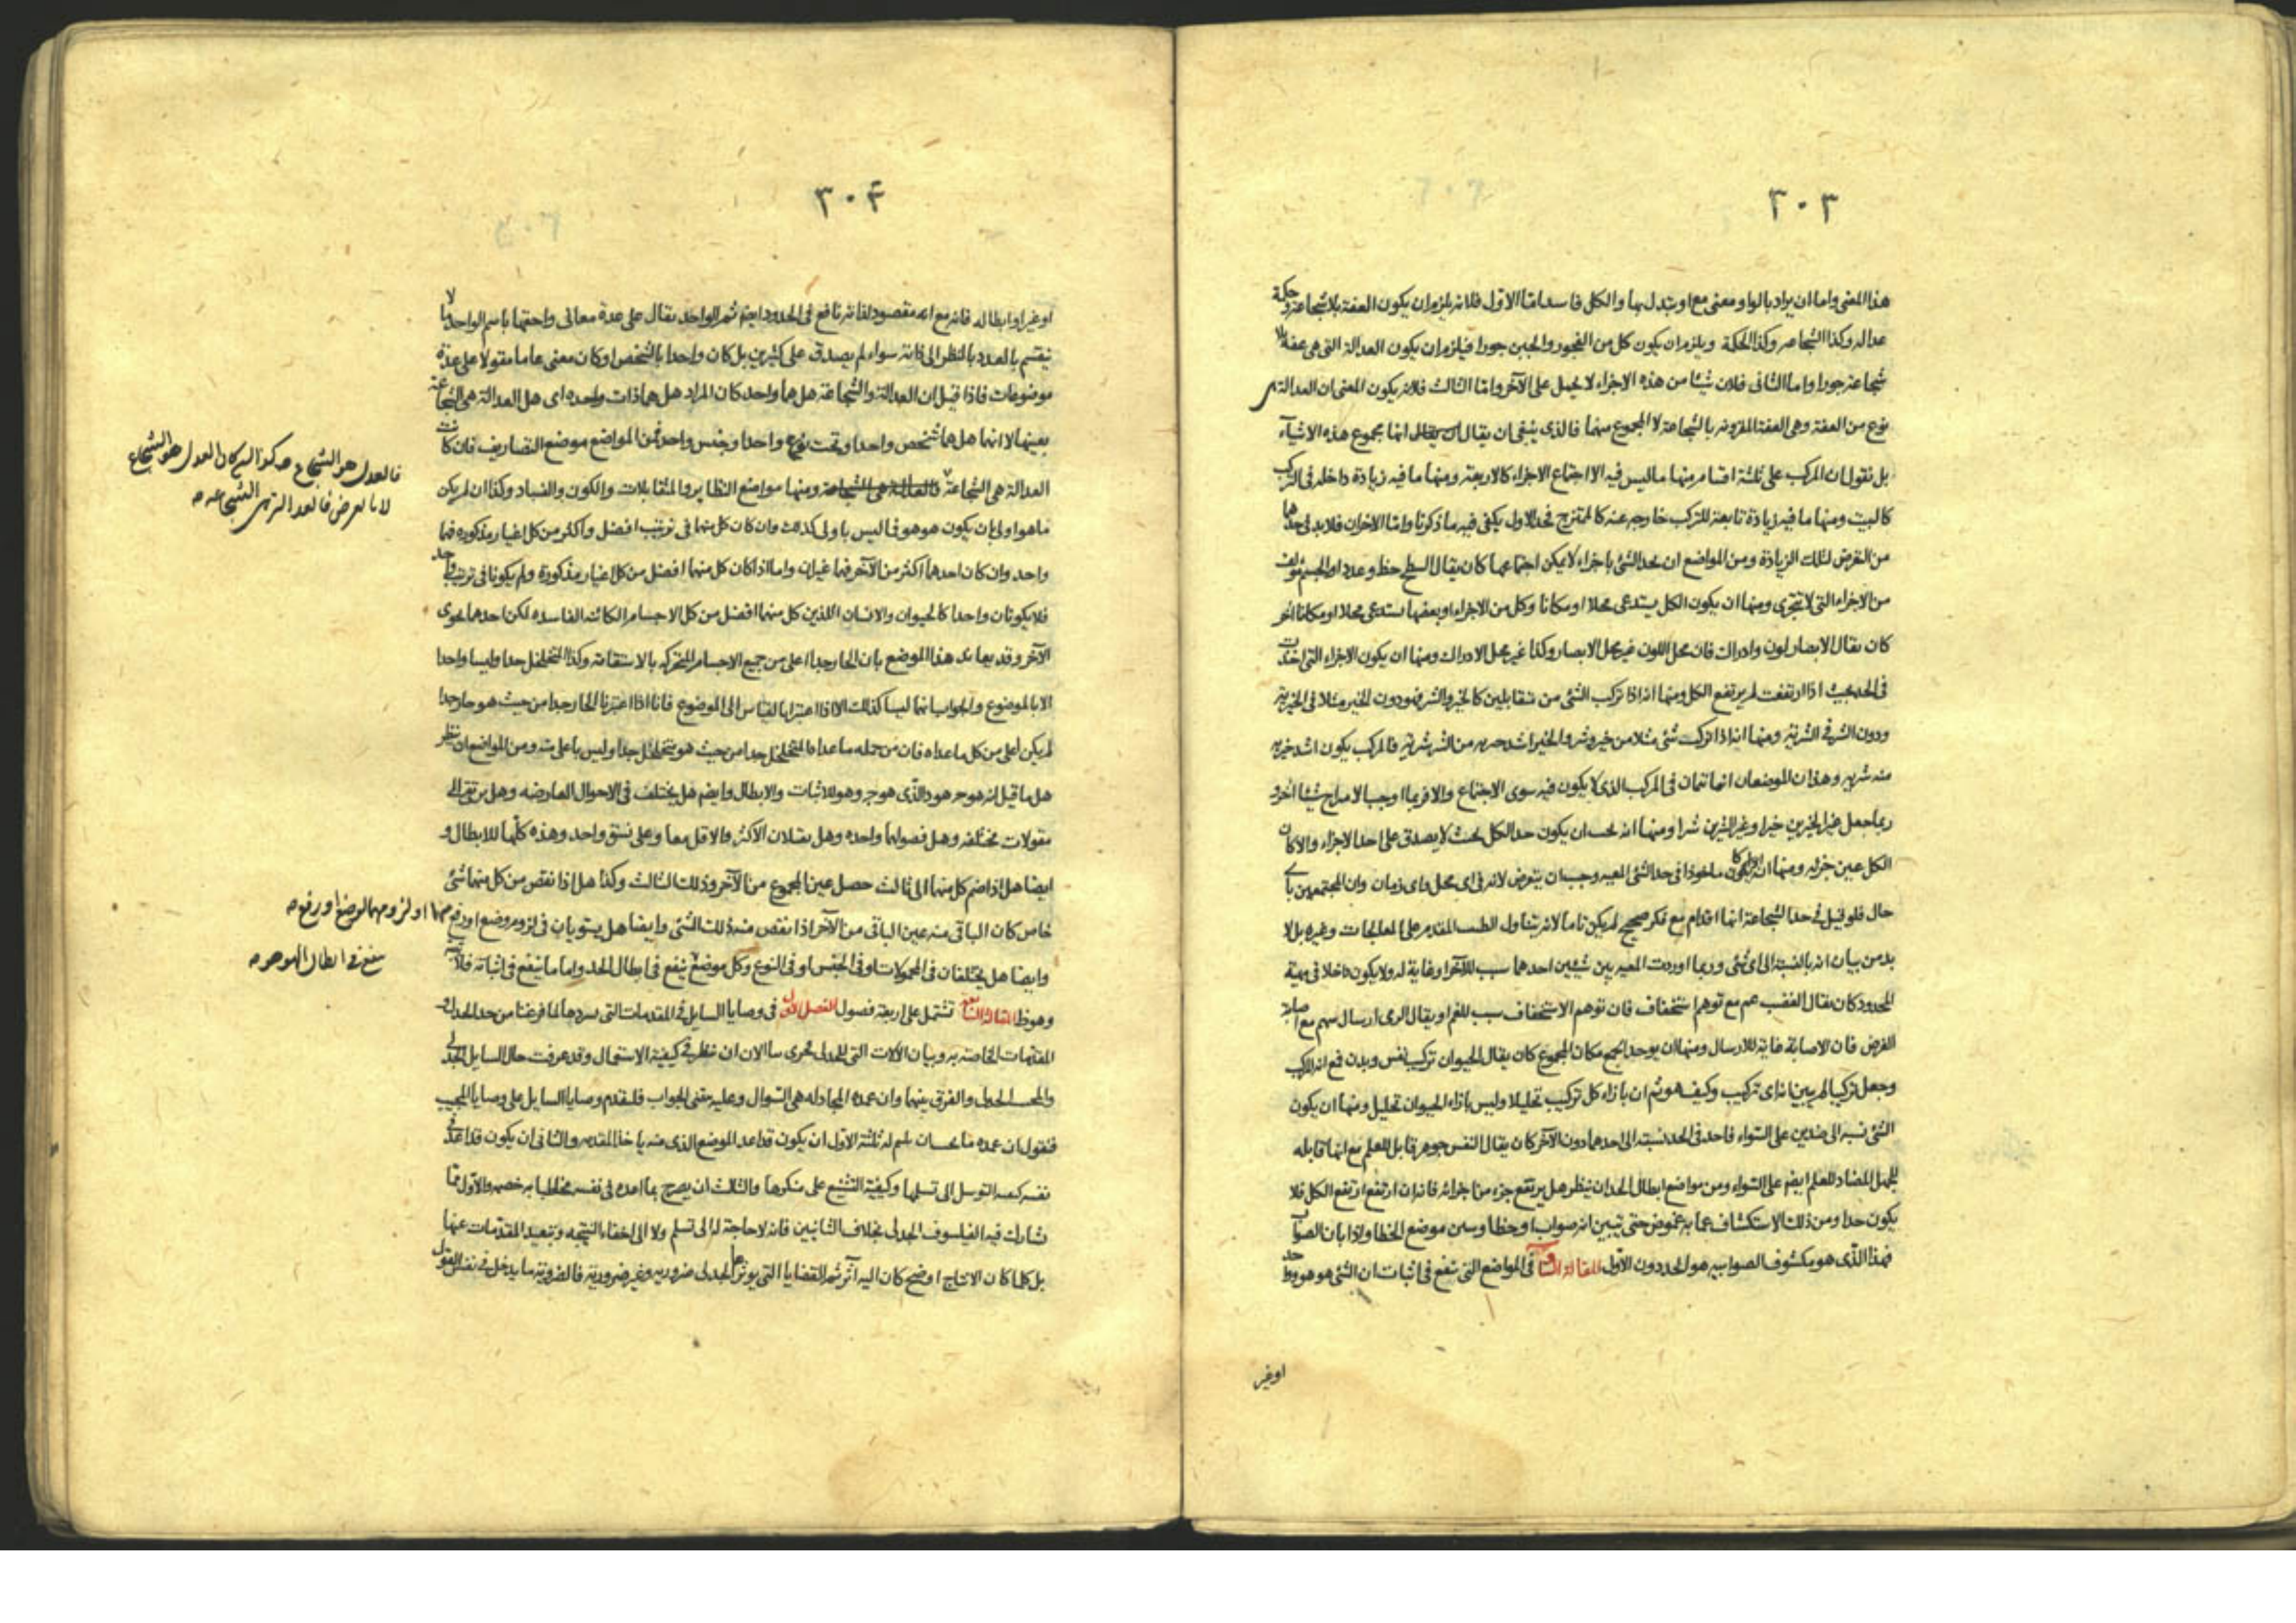 ٣٠٣
هذا المعنى واما ان يراد بالواو معنى مع او يتدل بها والكل فاسد اما الاول فلانه يلزم ان يكون العفة بلا شجاعة وحكمة
عدالة وكذا الشجاعة وكذا الحكمة ويلزم ان يكون كل من الفجور والجبن جورا فيلزم ان يكون العدالة التى هى عفة بلا
شجاعة جورا واما الثانى فلان شيئا من هذه الاجزاء لا يحمل على الآخر واما الثالث فلانه يكون المعنى ان العدالة هى
نوع من العفة وهى العفة المقرونة بالشجاعة لا المجموع منهما فالذى ينبغى ان يقال انها مجموع هذه الاشياء
بل نقول ان المركب على ثلثة اقسام منها ما ليس فيه الا اجتماع الاجزاء كالاربعة ومنها ما فيه زيادة داخلة فى التركيب
كالبيت ومنها ما فيه زيادة تابعة للتركيب خارجة عنه كالممتزج فحد الاول يكفى فيه ما ذكرنا واما الاخران فلا بد فى حدهما
من التعرض لتلك الزيادة ومن المواضع ان يحد الشئ باجزاء لا يمكن اجتماعها كان يقال السطح خط وعدد او الجسم مؤلف
من الاجزاء التى لا تتجزى ومنها ان يكون الكل يستدعى محلا او مكانا وكل من الاجزاء او بعضها يستدعى محلا او مكانا آخر
كان يقال الابصار لون وادراك فان محل اللون غير محل الابصار وكذا غير محل الادراك ومنها ان يكون الاجزاء التى اخذت
فى الحد بحيث اذا ارتفعت لم يرتفع الكل ومنها انه اذا تركب الشئ من متقابلين كالخير والشر فهو دون الخير مثلا فى الخيرية
ودون الشر فى الشرية ومنها انه اذا تركب شئ مثلا من خير وشر والخير اشد خيرية من الشر شرية فالمركب يكون اشد خيرية
منه شرية وهذان الموضعان انما تمان فى المركب الذى لا يكون فيه سوى الاجتماع والا فربما اوجب الامزاج شيئا آخر و
ربما جعل غير الخيرين خيرا وغير الشرين شرا ومنها انه يجب ان يكون حد الكل بحيث لا يصدق على احد الاجزاء والا كان
الكل عين جزئه ومنها ماخوذا فى حد الشئ المعية وجب ان يتعرض لانه فى اى محل واى زمان وان المجتمعين باى
حال فلو قيل فى حد الشجاعة انها اقدام مع فكر صحيح لم يكن تاما لانه يتناول الطب المقدم على المعالجات وغيره بل لا
بد من بيان انه بالنسبة الى اى شئ وربما اوردت المعية بين شيئين احدهما سبب للآخر او غاية له ولا يكون داخلا فى مهية
المحدود كان يقال الغضب غم مع توهم استخفاف فان توهم الاستخفاف سبب للغم او يقال الرمى ارسال سهم مع اصابة
الغرض فان الاصابة غاية للارسال ومنها ان يوخذ الجمع مكان المجموع كان يقال الحيوان تركيب نفس وبدن فمع انه المركب
وجعل تركيبا لم يبين انه اى تركيب وكيف هو ثم ان بازاء كل تركيب تحليلا وليس بازاء الحيوان تحليل ومنها ان يكون
الشئ نسبة الى ضدين على السواء فاخذ فى الحد نسبته الى احدهما دون الآخر كان يقال النفس جوهر قابل للعلم مع انها قابلة
للجهل المضاد للعلم ايضا على السواء ومن مواضع ابطال الحد ان ينظر هل يرتفع جزء من اجزائه فانه ان ارتفع ارتفع الكل فلا
يكون حدا ومن ذلك الاستكشاف عما به غموض حتى تبين انه صواب او خطا وبين موضع الخطا واذا بان الصواب
فهذا الذى هو مكشوف الصوابية هو الحد دون الاول المقالة السادسة فى المواضع التى تنفع فى اثبات ان الشئ هو هو واحد
او غير
٣٠٤
او غير او ابطاله فانه مع انه مقصود لذاته نافع فى الحدود ايضا ثم الواحد يقال على عدة معانى واحقها باسم الواحد ما لا
ينقسم بالعدد بالنظر الى ذاته سواء لم يصدق على كثيرين بل كان واحدا بالشخص او كان معنى عاما مقولا على عدة
موضوعات فاذا قيل ان العدالة والشجاعة هل هما واحد كان المراد هل هما ذات واحدة اى هل العدالة هى الشجاعة
بعينها لا انها هل هما شخص واحد او تحت نوع واحد او جنس واحد فمن المواضع موضع التصاريف فان كانت
العدالة هى الشجاعة ومنها مواضع النظاير والمتقابلات والكون والفساد وكذا ان لم يكن
ما هو اولى بان يكون هو هو فما ليس باولى كذلك وان كان كل منهما فى ترتيب افضل واكثر من كل اغيار مذكورة فهما
واحد وان كان احدهما اكثر من الآخر فهما غيران واما اذا كان كل منهما افضل من كل اغيار مذكورة ولم يكونا فى ترتيب واحد
فلا يكونان واحدا كالحيوان والانسان اللذين كل منهما افضل من كل الاجسام الكائنة الفاسدة لكن احدهما يحوى
الآخر وقد يعاند هذا الموضع بان الحار جدا اعلى من جميع الاجسام المتحركة بالاستقامة وكذا المتخلخل جدا وليسا واحدا
الا بالموضوع والجواب انهما ليسا كذلك الا اذا اعتبرا بالقياس الى الموضوع فانا اذا اعتبرنا الحار جدا من حيث هو حار جدا
لم يكن اعلى من كل ما عداه فان من جملة ما عداه المتخلخل جدا من حيث هو متخلخل جدا وليس باعلى منه ومن المواضع ان ينظر
هل ما قيل انه هو هو هو والذى هو جوهر وهو للاثبات والابطال وايضا هل يختلف فى الاحوال العارضة وهل يرتقى الى
مقولات مختلفة وهل فصولهما واحدة وهل يقبلان الاكثر والاقل معا وعلى نسق واحد وهذه كلها للابطال و
ايضا هل اذا ضم كل منهما الى ثالث حصل عين المجموع من الآخر وذلك الثالث وكذا هل اذا نقص من كل منهما شئ
خاص كان الباقى منه عين الباقى من الآخر اذا نقص منه ذلك الشئ وايضا هل يستويان فى لزوم وضع او رفع
وايضا هل يختلفان فى المحمولات او فى الجنس او فى النوع وكل موضع ينفع فى ابطال الحد واما ما ينفع فى اثباته فلا
وهو ظاهر المقالة السابعة تشتمل على اربعة فصول الفصل الاول فى وصايا السايل فى المقدمات التى سردها لما فرغنا من حد الجدل و
المقدمات الخاصة به وبيان الآلات التى للجدل فحرى بنا الان ان ننظر فى كيفية الاستعمال وقد عرفت حال السايل الجدلى
والمجيب الجدلى والفرق بينهما وان عمدة المجادلة هى السوال وعليه يبتنى الجواب فلنقدم وصايا السايل على وصايا المجيب
فنقول ان عمدة ما يحسان يلزم له ثلثة الاول ان يكون قد اعد الموضع الذى منه ياخذ المقدمة والثانى ان يكون قد اعد فى
نفسه كيفية التوسل الى تسلمها وكيفية التشنيع على منكرها والثالث ان يصرح بما اعده فى نفسه مخاطبا به خصمه والاول مما
تشارك فيه الفيلسوف الجدلى بخلاف الثانيين فانه لا حاجة له الى تسلم ولا الى اخفاء النتيجة وتبعيد المقدمات عنها
بل كلما كان الانتاج اوضح كان اليه آثر ثم القضايا التى يوردها الجدلى ضرورية وغير ضرورية فالضرورية ما يدخل فى نفس القول
فالعدل هو الشجاع كان العدل هو الشجاع
لا بالعرض فالعدالة هى الشجاعة
منهما او لزومهما لوضع او رفع
ينفع فى ابطال الهوهو